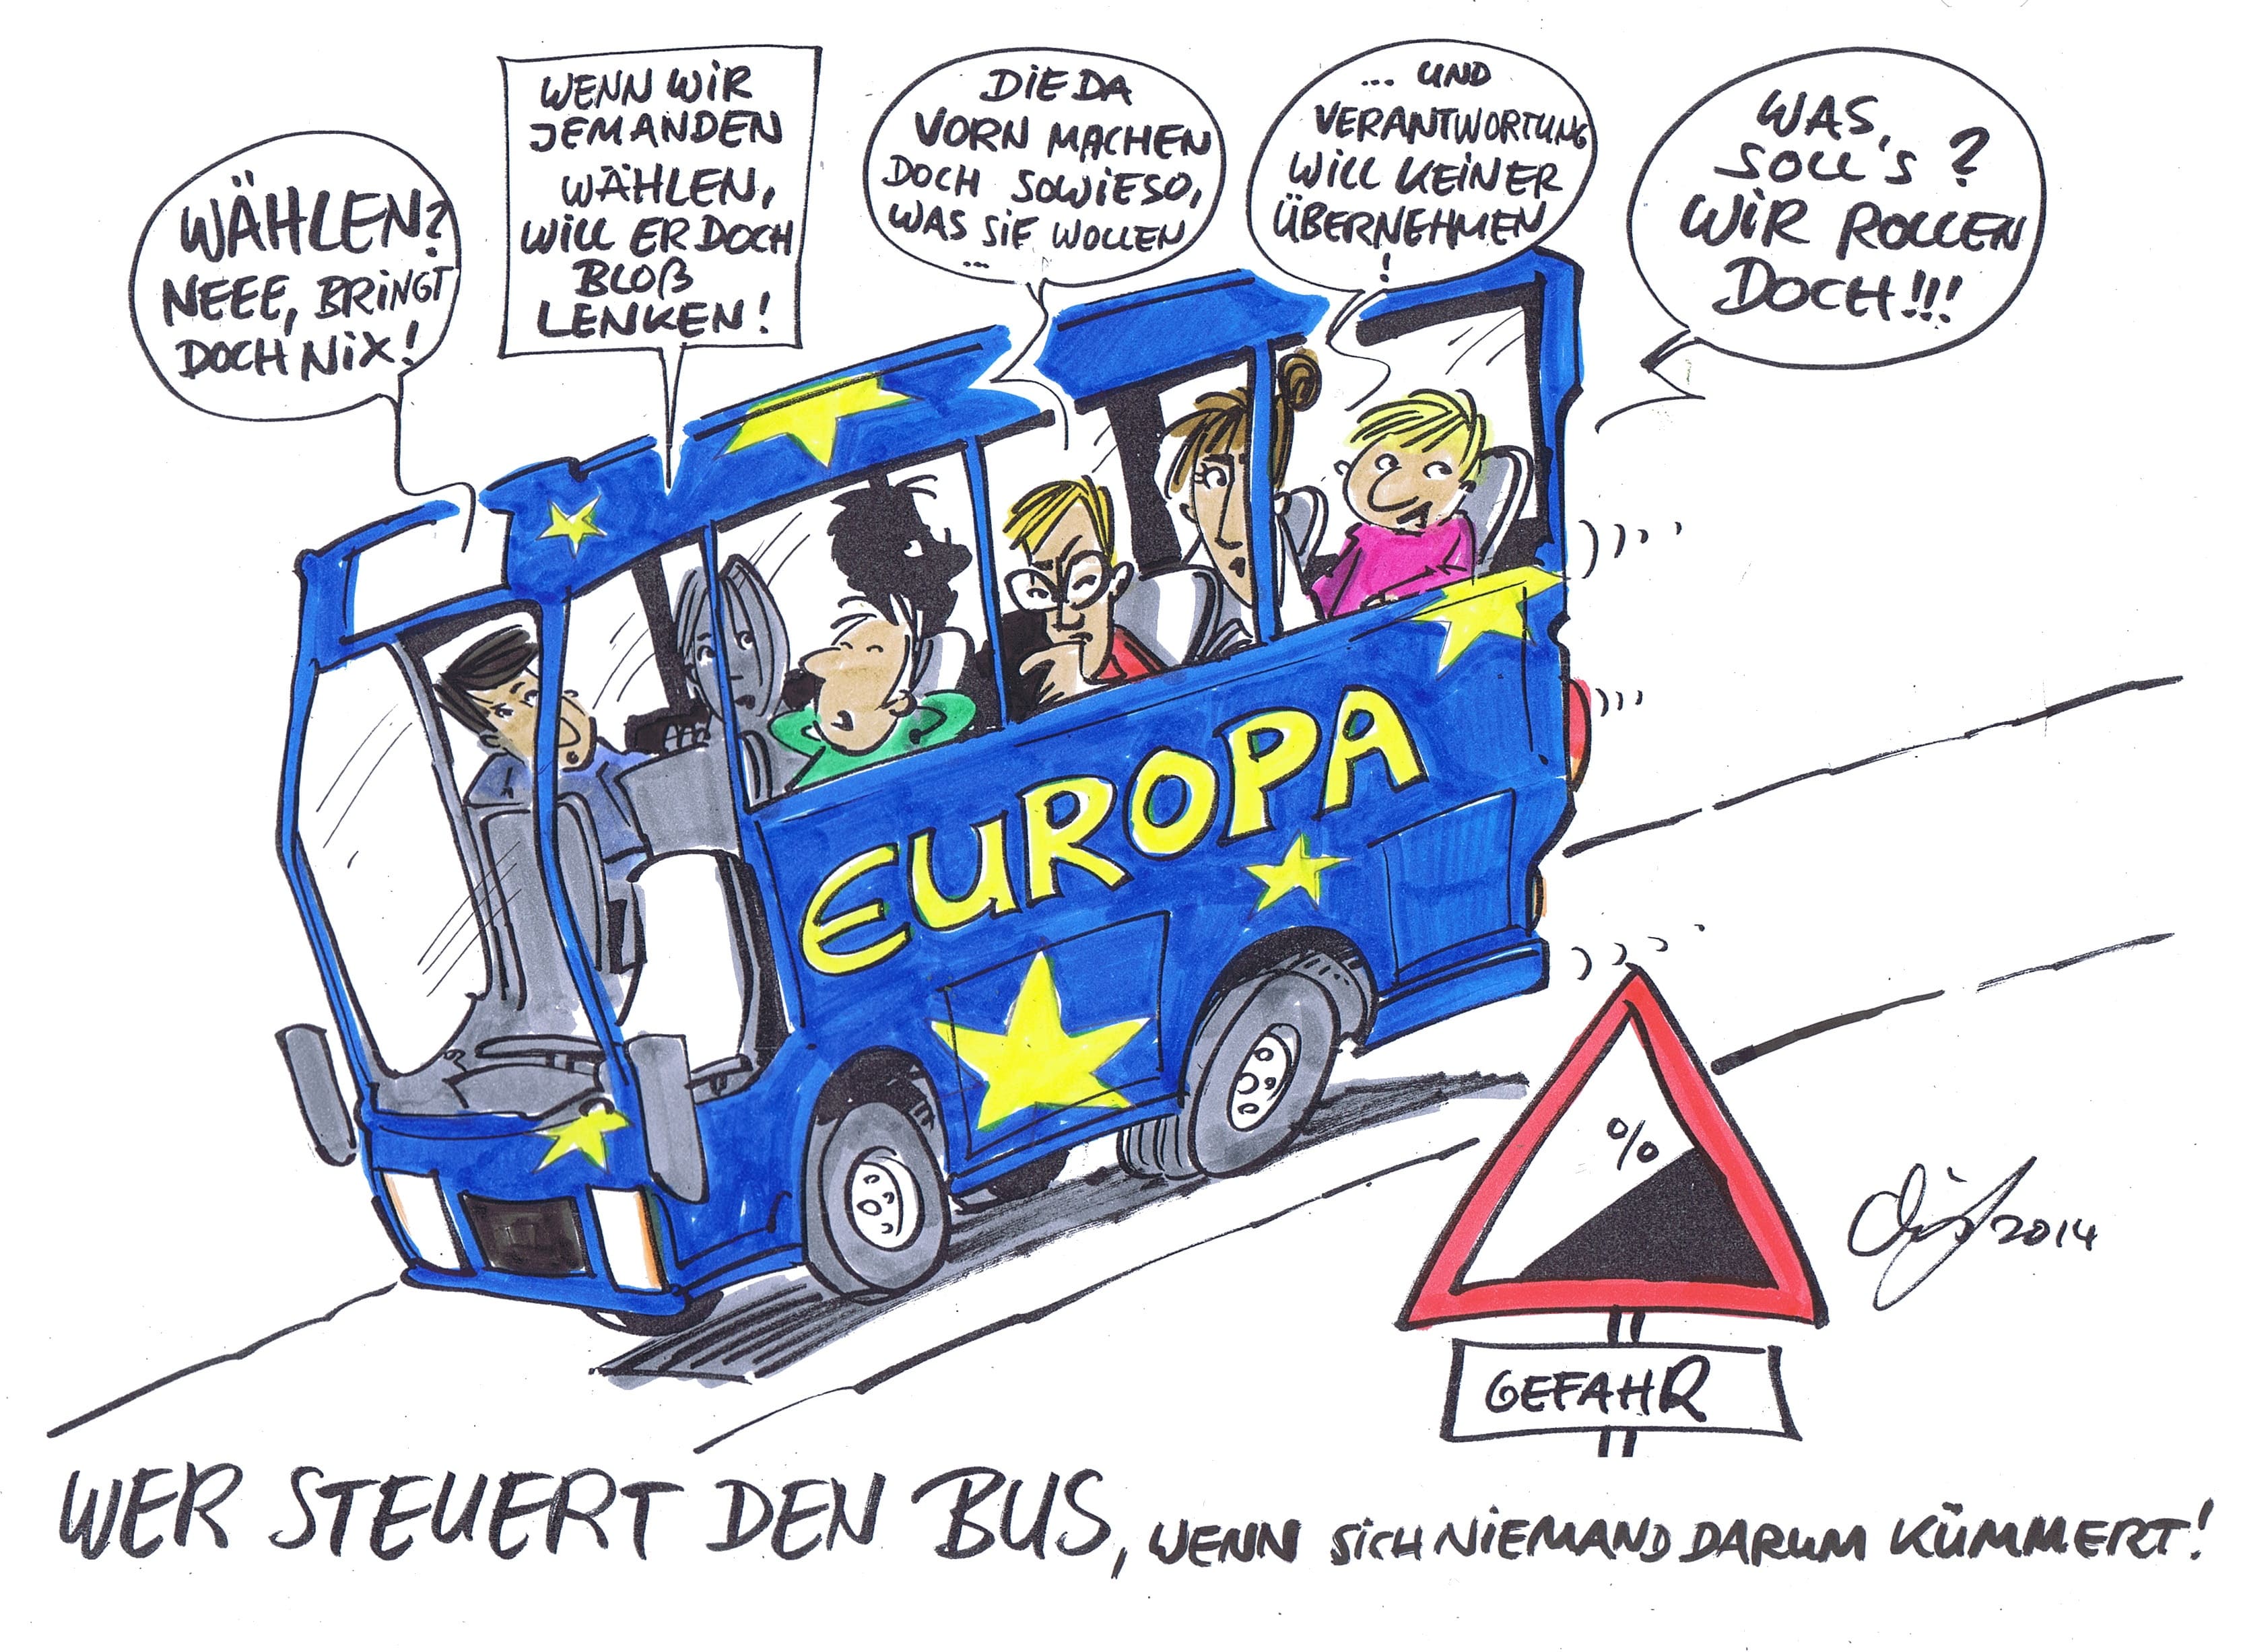 WÄHLEN?
NEEE, BRINGT
DOCH NIX!
WENN WIR
JEMANDEN
WÄHLEN,
WILL ER DOCH
BLOß
LENKEN!
DIE DA
VORN MACHEN
DOCH SOWIESO,
WAS SIE WOLLEN
...
... UND
VERANTWORTUNG
WILL KEINER
ÜBERNEHMEN
!
WAS
SOLL'S?
WIR ROLLEN
DOCH!!!
EUROPA
%
2014
GEFAHR
WER STEUERT DEN BUS, WENN SICH NIEMAND DARUM KÜMMERT!